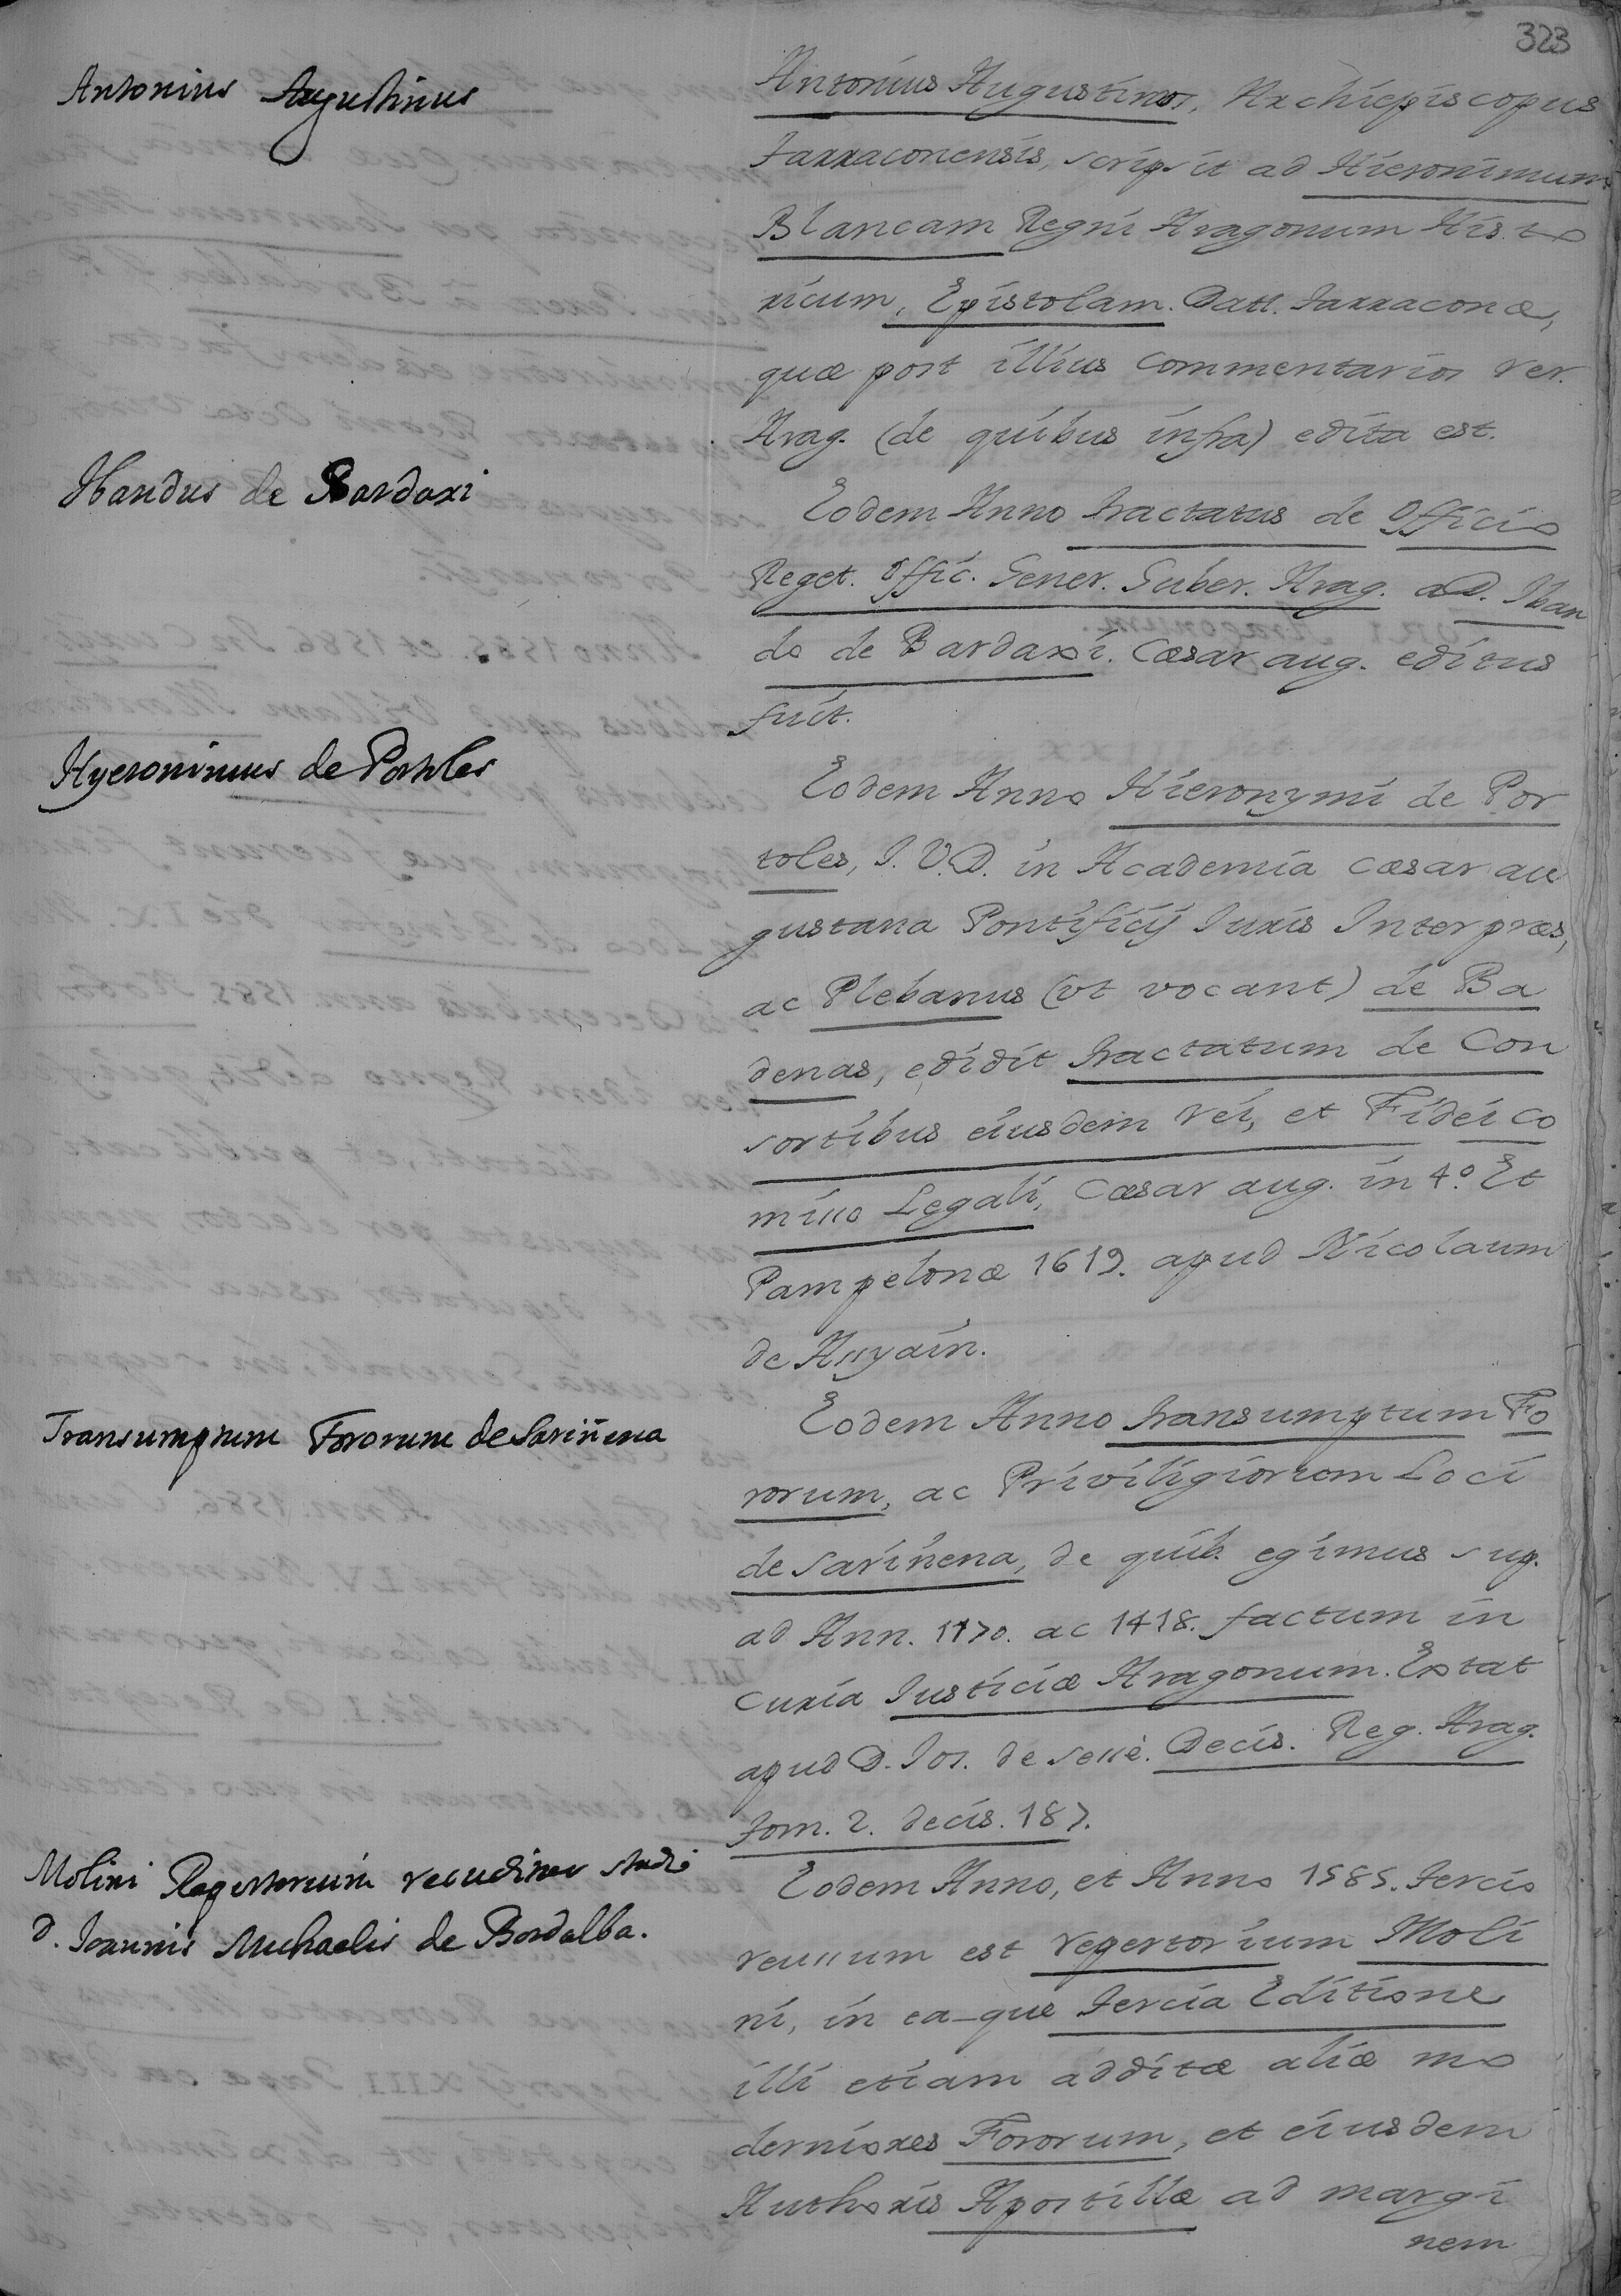 323
Antonius Augustinus
Antonius Augustinus, Archiepiscopus
Tarraconensis, scripsit ad Hieronimum
Blancam Regni Aragonum Histo
ricum, Epistolam. Datt. Tarraconæ,
quæ post illius commentarios rer.
Arag. (de quibus infra) edita est.
Ibandus de Bardaxi
Eodem Anno tractatus de Officio
Reget. Offic. Gener. Guber. Arag. a D. Iban
do de Bardaxi. Cæsar aug. editus
fuit.
Hyeronimus de Portoles
Eodem Anno Hieronymi de Por
toles, I. V. D. in Academia cæsar au
gustana Pontificij Iuris Interpræs,
ac Plebanus (vt vocant) de Ba
denas, edidit tractatum de Con
sortibus eiusdem rei, et Fidei co
misso Legali, Cæsar aug. in 4.º Et
Pampelonæ 1619. apud Nicolaum
de Assyain.
Transumptum Fororum de Sariñena
Eodem Anno transumptum Fo
rorum, ac Privitigiorum Loci
de Sariñena, de quib. egimus sup.
ad Ann. 1170. ac 1418. factum in
curia Iusticiæ Aragonum. Extat
apud D. Jos. de Sessè. Decis. Reg. Arag.
tom. 2. decis. 187.
Molini Repertorium recuditur studio
D. Ioannis Michaelis de Bordalba.
Eodem Anno, et Anno 1585. tercio
reussum est repertorium Moli
ni, in ea-que tercia Editione
illi etiam additæ aliæ mo
derniores Fororum, et eiusdem
Authoris Apostillæ ad margi
nem